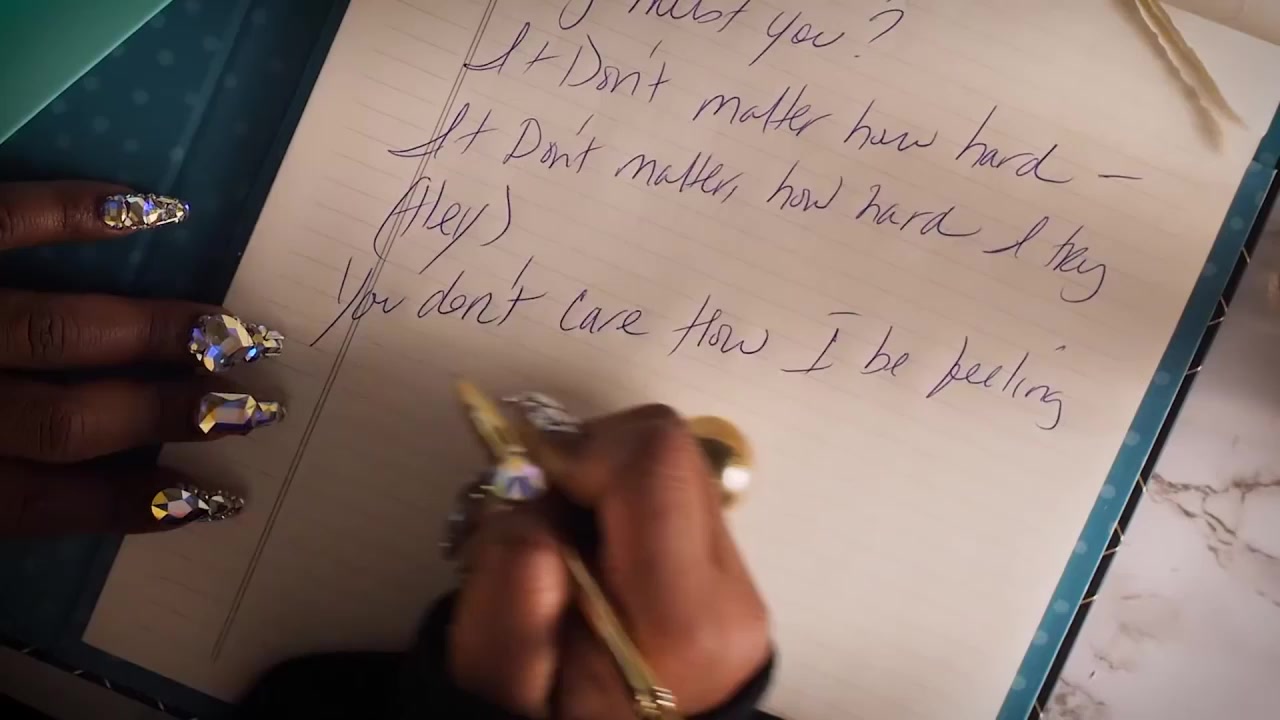 trust you?
It Don't matter how hard —
It Don't matter, how hard I try
(Hey)
You don't care How I be feeling